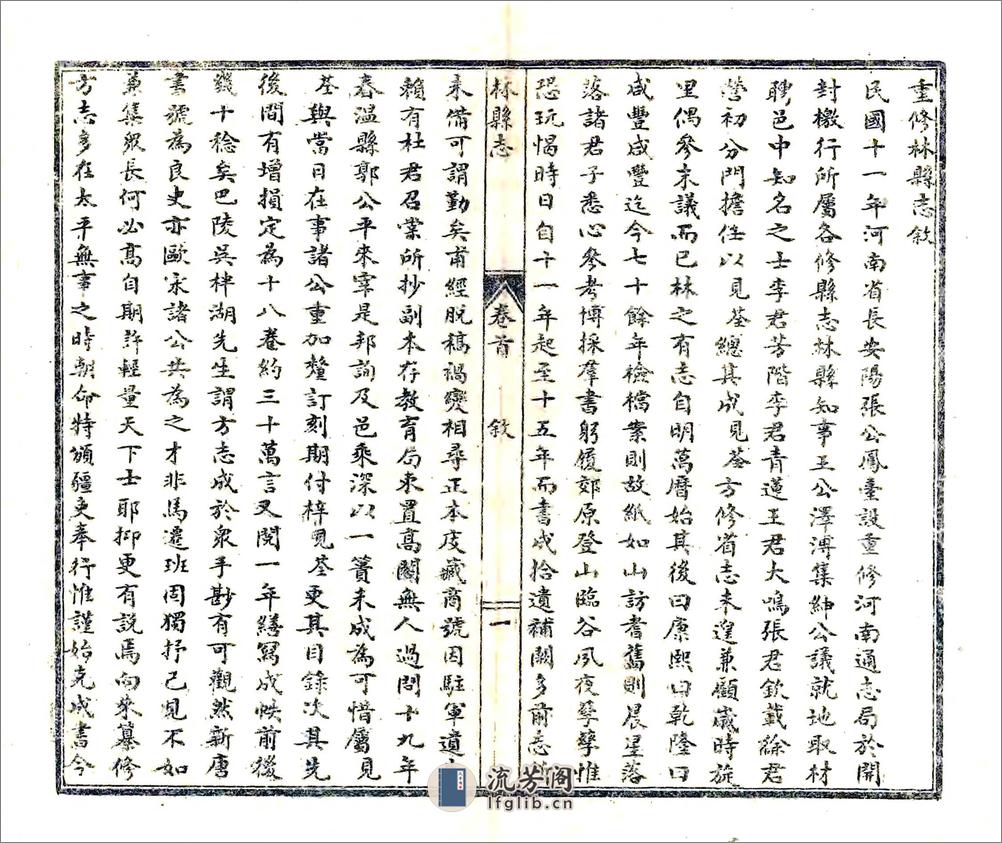 重修林縣志敘
民國十一年河南省長安陽張公鳳臺設重修河南通志局於開
封檄行所屬各修縣志林縣知事王公澤溥集紳公議就地取材
聘邑中知名之士李君芳階李君青蓮王君大鳴張君欽載徐君
營初分門擔任以見荃總其成見荃方修省志未遑兼顧歲時旋
里偶參末議而已林之有志自明萬曆始其後曰康熙曰乾隆曰
咸豐咸豐迄今七十餘年檢檔案則故紙如山訪耆舊則晨星落
落諸君子悉心參考博採羣書躬履郊原登山臨谷夙夜孳孳惟
恐玩愒時日自十一年起至十五年而書成拾遺補闕多前志所
林縣志 卷首 敘 一
未備可謂勤矣甫經脫稿禍變相尋正本庋藏商號因駐軍遺
賴有杜君召棠所抄副本存教育局束置高閣無人過問十九年
春溫縣郭公平來宰是邦詢及邑乘深以一簣未成為可惜屬見
荃與當日在事諸公重加釐訂刻期付梓見荃更其目錄次其先
後間有增損定為十八卷約三十萬言又閱一年繕寫成帙前後
幾十稔矣巴陵吳柈湖先生謂方志成於衆手尠有可觀然新唐
書號為良史亦歐宋諸公共為之才非馬遷班固獨抒己見不如
兼集衆長何必高自期許輕量天下士耶抑更有說焉向來纂修
方志多在太平無事之時朝命特頒疆吏奉行惟謹始克成書今
流芳阁
lfglib.cn